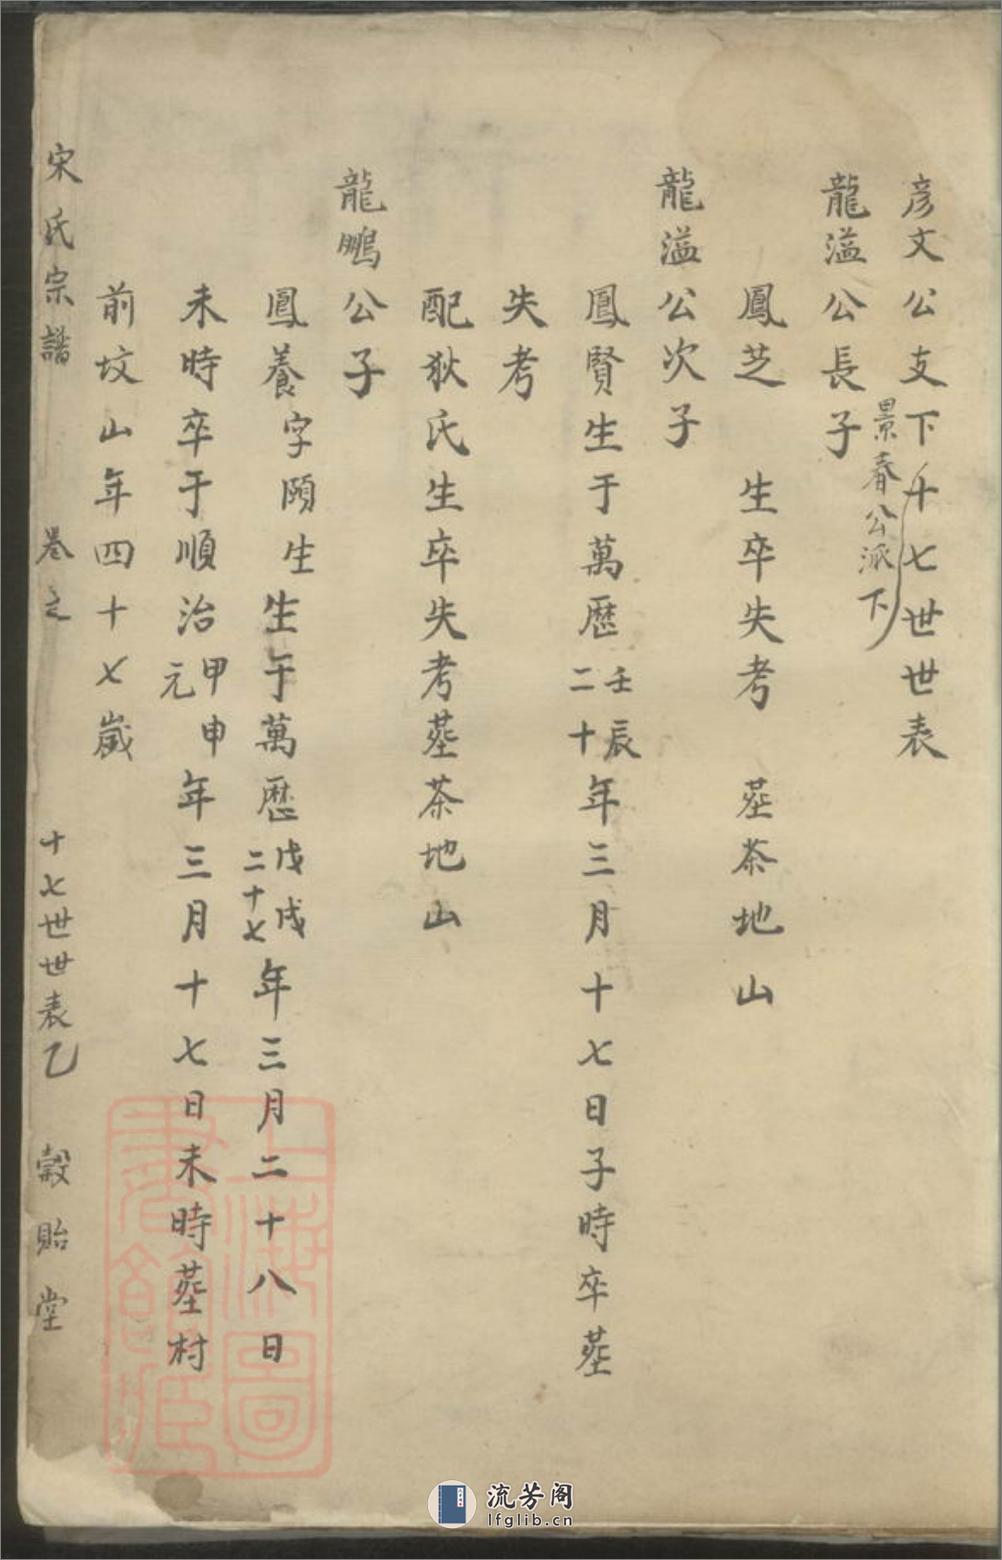 彦文公支下十七世世表
景春公派下
龍溢公長子
鳳芝 生卒失考 塟茶地山
龍溢公次子
鳳賢生于萬歷壬辰二十年三月十七日子時卒塟
失考
配狄氏生卒失考塟茶地山
龍鵬公子
鳳養字頤生生于萬歷戊戌二十七年三月二十八日
未時卒于順治甲申元年三月十七日未時塟村
前坟山年四十七歲
宋氏宗譜 卷之 十七世世表乙 穀貽堂
上海圖書館藏
流芳阁
lfglib.cn